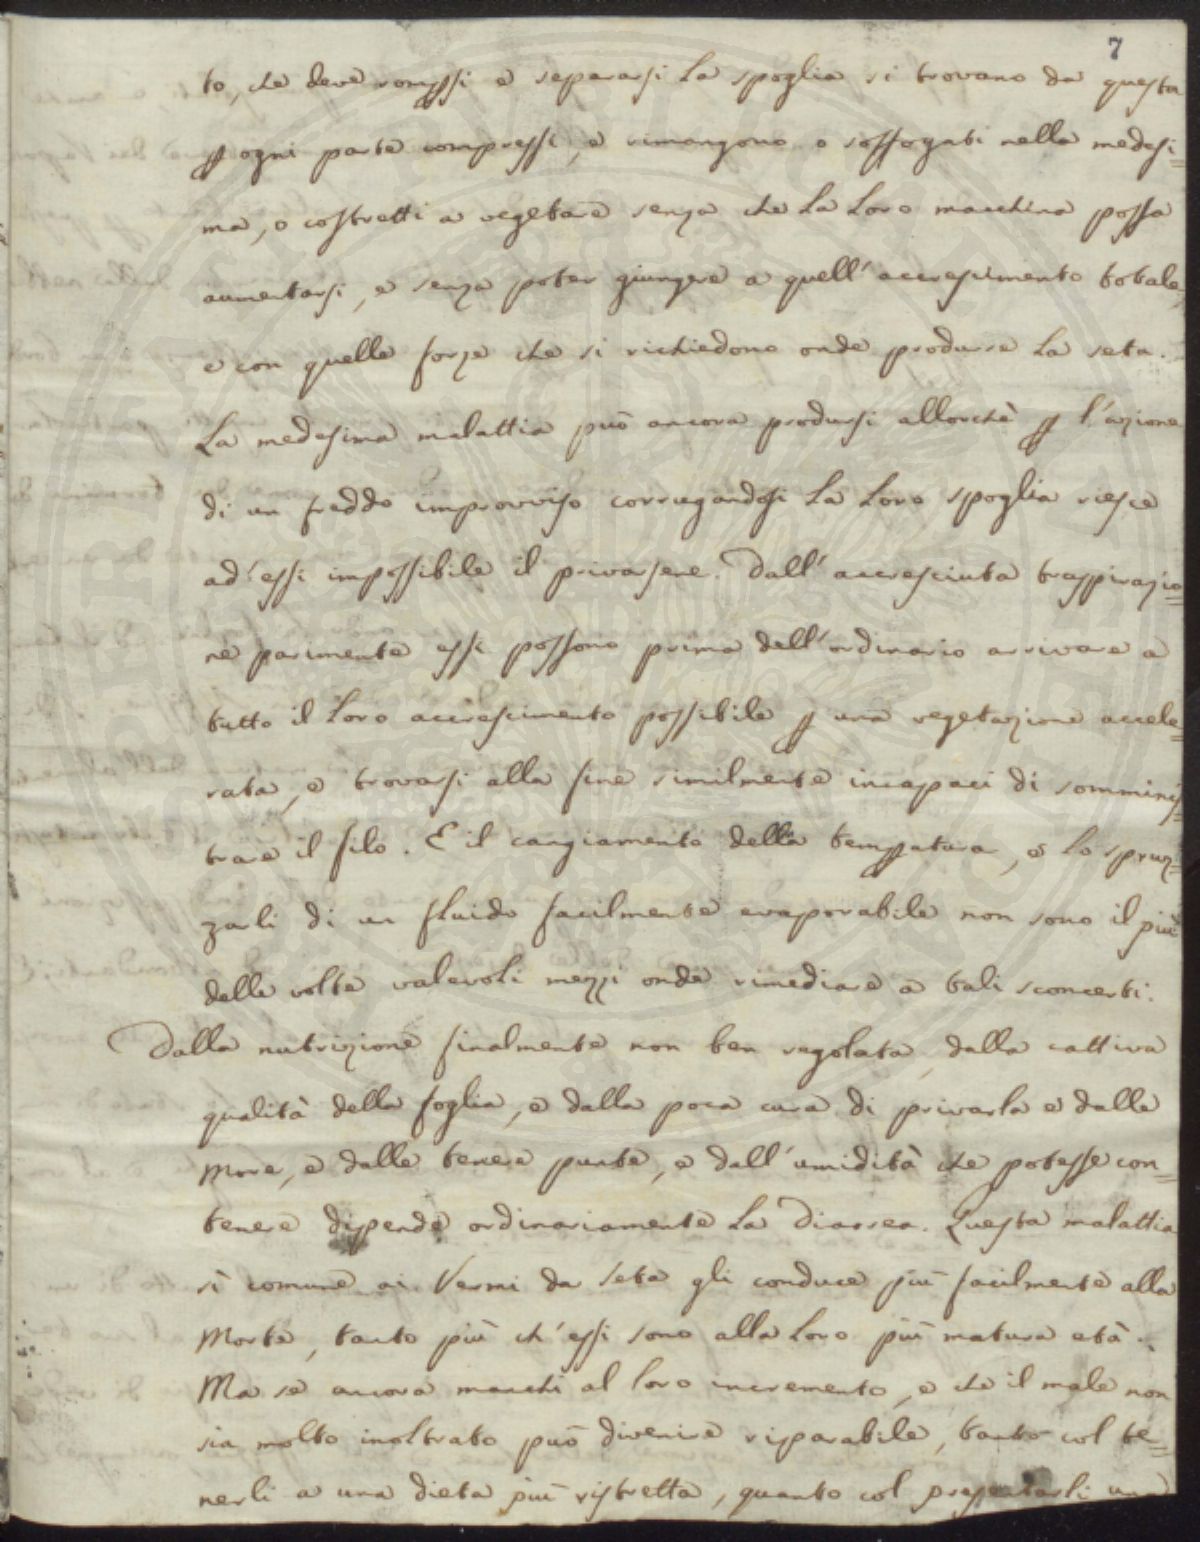 7
to, che deve rompersi e separarsi la spoglia si trovano da questa
p ogni parte compressi, e rimangono o soffogati nella medesi=
ma, o costretti a vegetare senza che la loro macchina possa
aumentarsi, e senza poter giungere a quell'accrescimento totale,
e con quelle forze che si richiedono onde produrre la seta.
La medesima malattia può ancora prodursi allorchè p l'azione
di un freddo improvviso corrugandosi la loro spoglia riesce
ad'essi impossibile il privarsene. Dall'accresciuta traspirazio=
ne parimente essi possono prima dell'ordinario arrivare a
tutto il loro accrescimento possibile p una vegetazione accele=
rata, e trovarsi alla fine similmente incapaci di sommini=
trare il filo. E il cangiamento della tempatura, e lo spruz=
zarli di un fluido facilmente evaporabile non sono il più
delle volte valevoli mezzi onde rimediare a tali sconcerti.
Dalla nutrizione finalmente non ben regolata, dalla cattiva
qualità della foglia, e dalla poca cura di privarla e dalle
More, e dalle tenere punte, e dall'umidità che potesse con=
tenere dipende ordinariamente la Diarrea. Questa malattia
sì comune ai Vermi da seta gli conduce più facilmente alla
Morte, tanto più ch'essi sono alla loro più matura età.
Ma se ancora manchi al loro incremento, e che il male non
sia molto inoltrato può divenire riparabile, tanto col te=
nerli a una dieta più ristretta, quanto col presentarli una